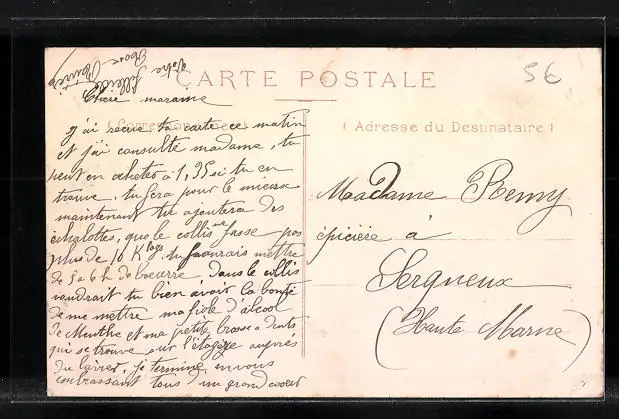 CARTE POSTALE
5€
Correspondance
Adresse du Destinataire
Chère maraine
j'ai recue ta carte ce matin
et j'ai consulté madame, tu
peut en acheter à 1,35 si tu en
trouve, tu fera pour le mieux
maintenant tu ajoutera des
échalottes, que le collis ne fasse pas
plus de 10 Kilogs, tu pourrais mettre
de 5 a 6 L de beurre dans le collis
voudrait tu bien avoir la bonté
de me mettre ma fiole d'alcool
de Menthe et ma petite brosse a dents
qui se trouve sur l'étagère auprès
du lavier, je termine en vous
embrassant tous d'un grand coeur
Votre filleule
Rose
Madame Remy
épicière à
Serqueux
(Haute Marne)